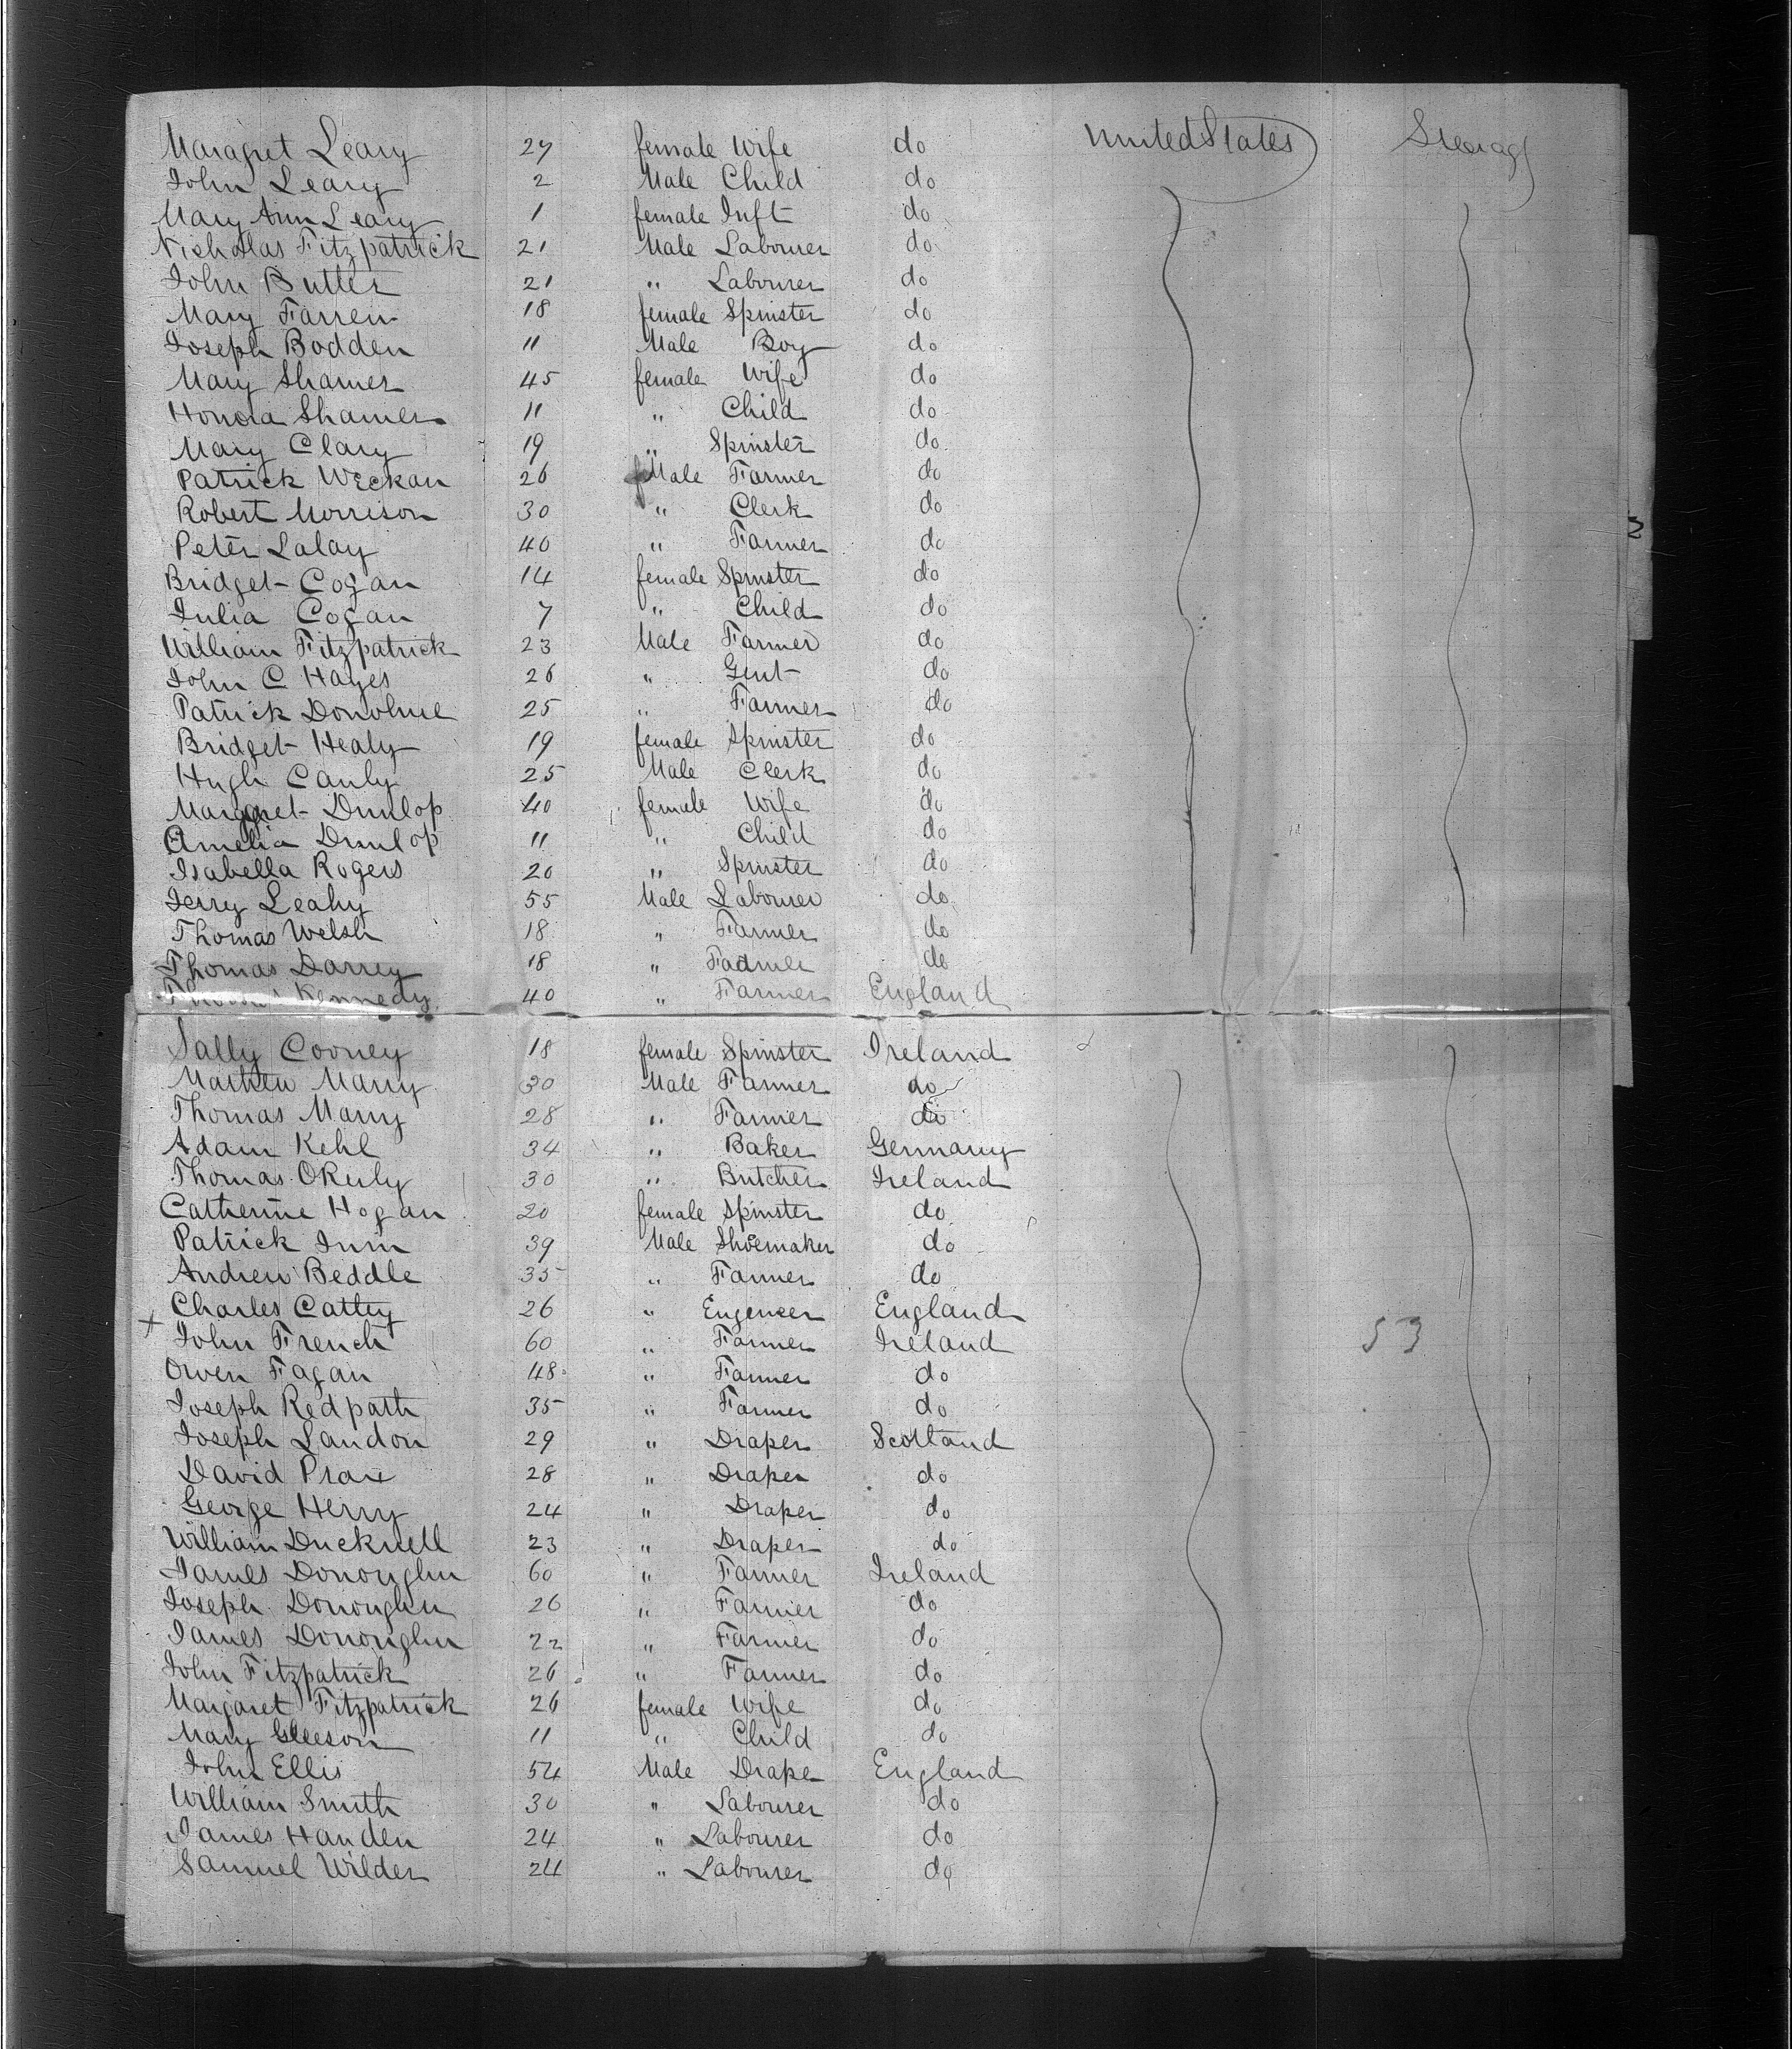 Maragret Leary 27 female Wife do United States Steerag
John Leary 2 Male Child do
Mary Ann Leary 1 female Inft do
Nicholas Fitzpatrick 21 Male Labourer do
John Butler 21 " Labourer do
Mary Farren 18 female Spinster do
Joseph Bodden 11 Male Boy do
Mary Shamer 45 female Wife do
Honora Shamer 11 " Child do
Mary Clary 19 " Spinster do
Patrick Weckan 26 Male Farmer do
Robert Morrison 30 " Clerk do
Peter Lalay 40 " Farmer do
Bridget Cogan 14 female Spinster do
Julia Cogan 7 " Child do
William Fitzpatrick 23 Male Farmer do
John C Hayes 26 " Gent do
Patrick Donohue 25 " Farmer do
Bridget Healy 19 female Spinster do
Hugh Canly 25 Male Clerk do
Margaret Dunlop 40 female Wife do
Amelia Dunlop 11 " Child do
Isabella Rogers 20 " Spinster do
Jerry Leahy 55 Male Labourer do
Thomas Welsh 18 " Farmer do
Thomas Darrey 18 " do
Kennedy 40 " Farmer England
Sally Cooney 18 female Spinster Ireland
Mathew Marry 30 Male Farmer do
Thomas Marry 28 " Farmer do
Adam Kehl 34 " Baker Germany
Thomas 30 " Butcher Ireland
Catherine Hogan 20 female Spinster do
Patrick 39 Male Shoemaker do
Andrew Beddle 35 " Farmer do
Charles Catley 26 " Engeneer England
+ John French 60 " Farmer Ireland 53
Owen Fagan 48 " Farmer do
Joseph Redpath 35 " Farmer do
Joseph Landon 29 " Draper Scotland
David 28 " Draper do
George Herry 24 " Draper do
William Ducknell 23 " Draper do
James Donoughu 60 " Farmer Ireland
Joseph Donoughu 26 " Farmer do
James Donoughu 22 " Farmer do
John Fitzpatrick 26 " Farmer do
Margaret Fitzpatrick 26 female Wife do
Mary Gleeson 11 " Child do
John Ellis 54 Male Drape England
William Smith 30 " Labourer do
James Handen 24 " Labourer do
Samuel Wilder 24 " Labourer do